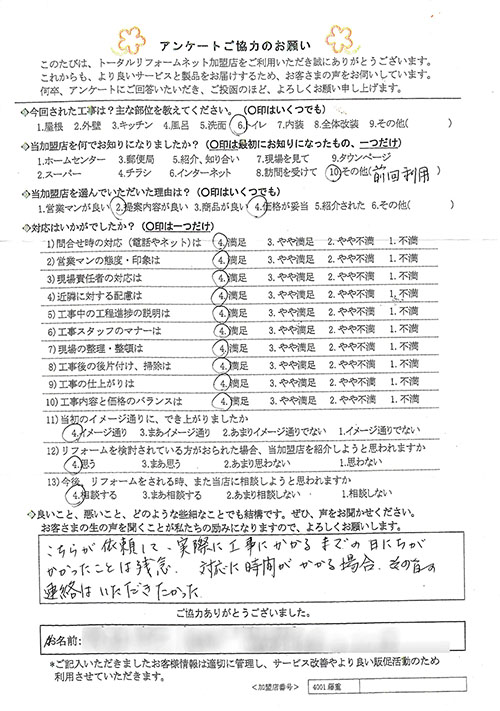 アンケートご協力のお願い
このたびは、トータルリフォームネット加盟店をご利用いただき誠にありがとうございます。
これからも、より良いサービスと製品をお届けするため、お客さまの声をお伺いしています。
何卒、アンケートにご回答いただいき、ご投函のほど、よろしくお願い申し上げます。
◆今回された工事は？主な部位を教えてください。（〇印はいくつでも）
1.屋根 2.外壁 3.キッチン 4.風呂 5.洗面 6.トイレ 7.内装 8.全体改装 9.その他( )
◆当加盟店を何でお知りになりましたか？（〇印は最初にお知りになったもの、一つだけ）
1.ホームセンター 3.郵便局 5.紹介、知り合い 7.現場を見て 9.タウンページ
2.スーパー 4.チラシ 6.インターネット 8.訪問を受けて 10.その他(前回利用)
◆当加盟店を選んでいただいた理由は？（〇印はいくつでも）
1.営業マンが良い 2.提案内容が良い 3.商品が良い 4.価格が妥当 5.紹介された 6.その他( )
◆対応はいかがでしたか？（〇印は一つだけ）
1)問合せ時の対応（電話やネット）は 4.満足 3.やや満足 2.やや不満 1.不満
2)営業マンの態度・印象は 4.満足 3.やや満足 2.やや不満 1.不満
3)現場責任者の対応は 4.満足 3.やや満足 2.やや不満 1.不満
4)近隣に対する配慮は 4.満足 3.やや満足 2.やや不満 1.不満
5)工事中の工程進捗の説明は 4.満足 3.やや満足 2.やや不満 1.不満
6)工事スタッフのマナーは 4.満足 3.やや満足 2.やや不満 1.不満
7)現場の整理・整頓は 4.満足 3.やや満足 2.やや不満 1.不満
8)工事後の後片付け、掃除は 4.満足 3.やや満足 2.やや不満 1.不満
9)工事の仕上がりは 4.満足 3.やや満足 2.やや不満 1.不満
10)工事内容と価格のバランスは 4.満足 3.やや満足 2.やや不満 1.不満
11)当初のイメージ通りに、でき上がりましたか
4.イメージ通り 3.まあイメージ通り 2.あまりイメージ通りでない 1.イメージ通りでない
12)リフォームを検討されている方がおられた場合、当加盟店を紹介しようと思われますか
4.思う 3.まあ思う 2.あまり思わない 1.思わない
13)今後、リフォームをされる時、また当店に相談しようと思われますか
4.相談する 3.まあ相談する 2.あまり相談しない 1.相談しない
◆良いこと、悪いこと、どのような些細なことでも結構です。ぜひ、声をお聞かせください。
お客さまの生の声を聞くことが私たちの励みになりますので、よろしくお願いします。
こちらが依頼して、実際に工事にかかるまでの日にちが
かかったことは残念。対応に時間がかかる場合、その旨の
連絡はいただきたかった
ご協力ありがとうございました。
お名前:
*ご記入いただきましたお客様情報は適切に管理し、サービス改善やより良い販促活動のため
利用させていただきます。
＜加盟店番号＞ 4001藤重